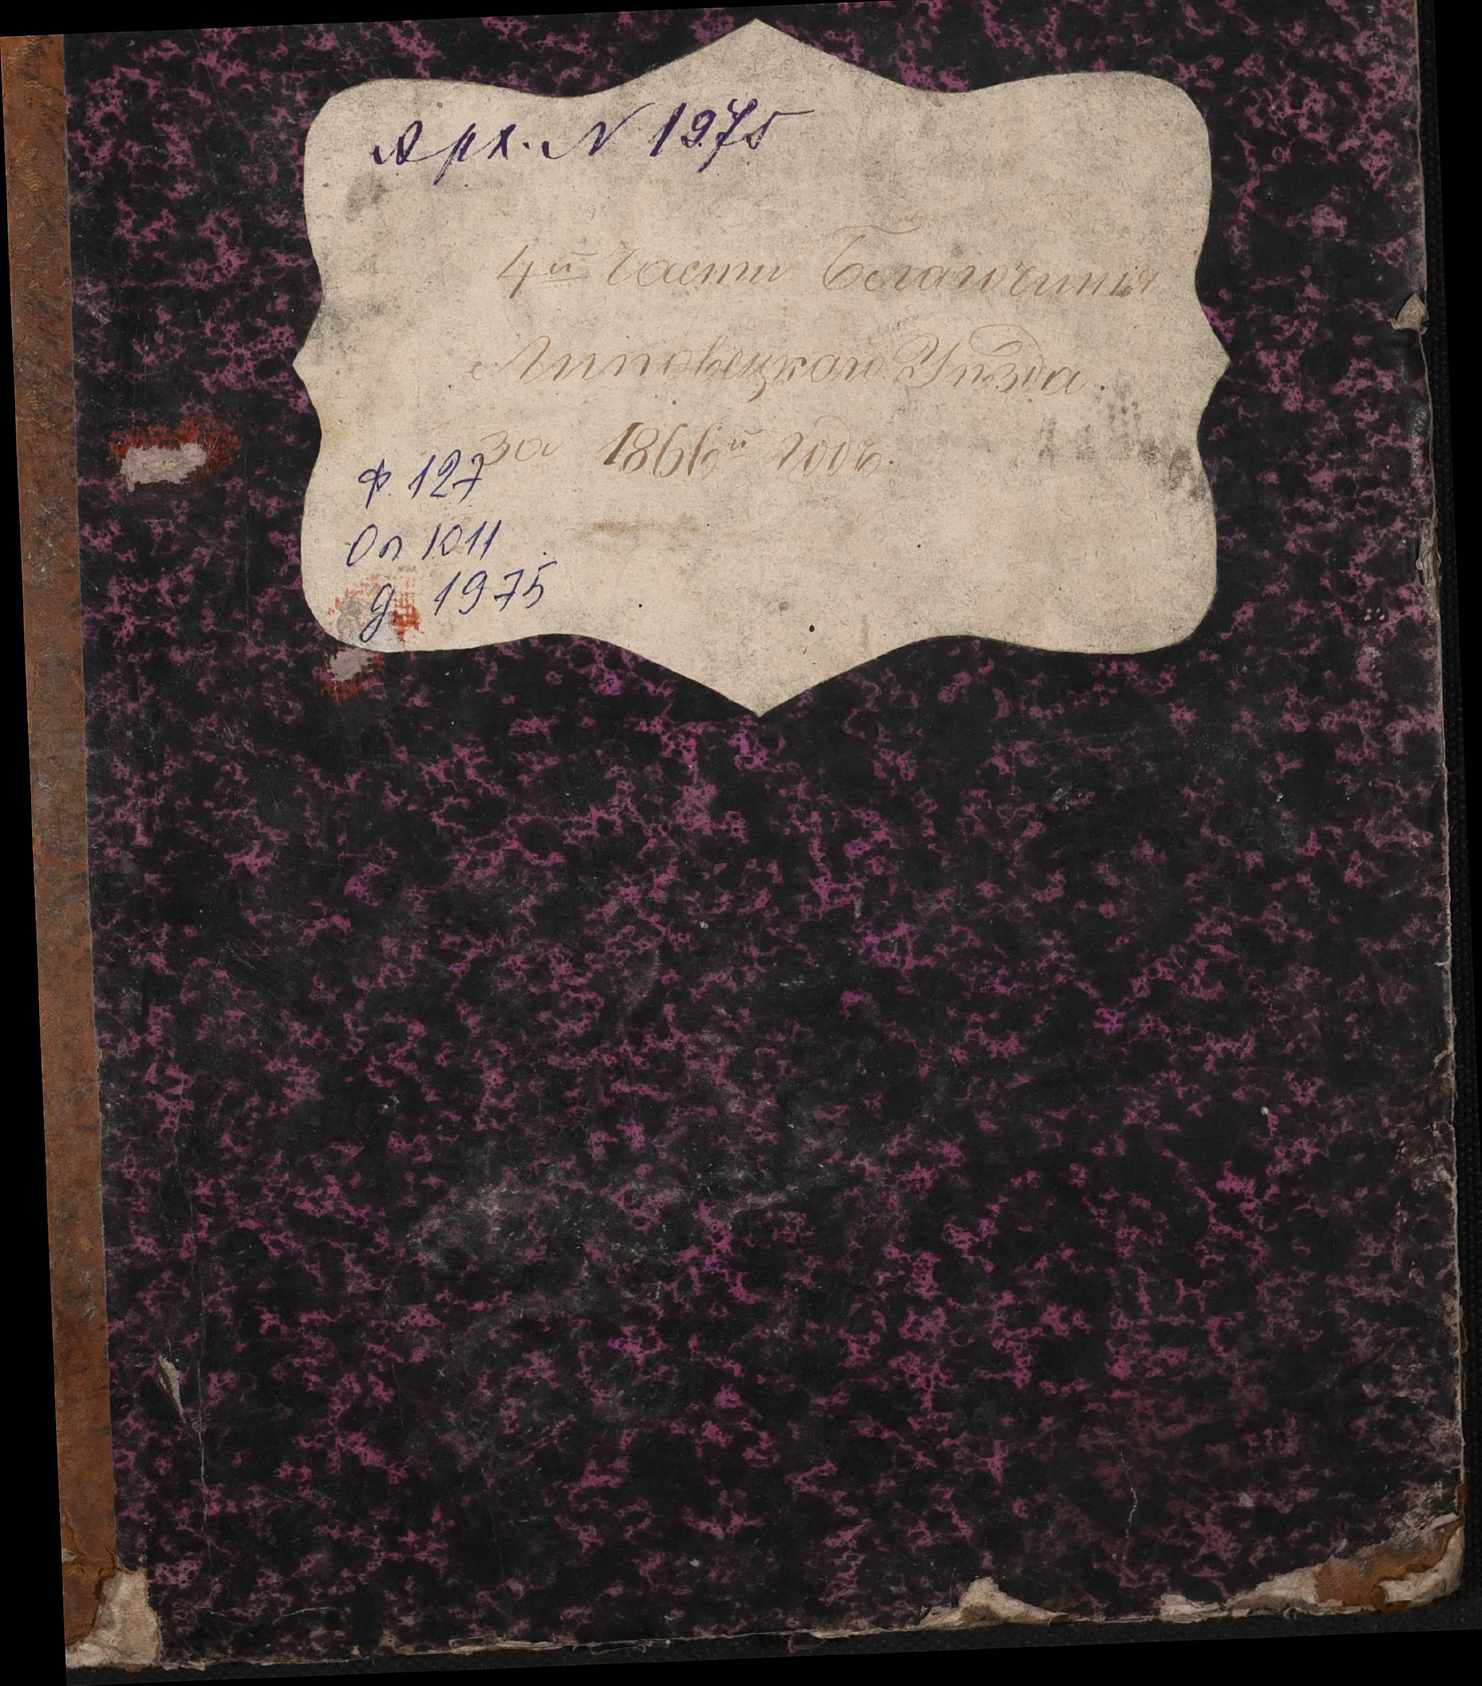 Арх. N 1975
4й Части Благочинія
Липовецкаго Уѣзда.
за 1866й годъ.
Ф. 127
Оп 1011
д 1975